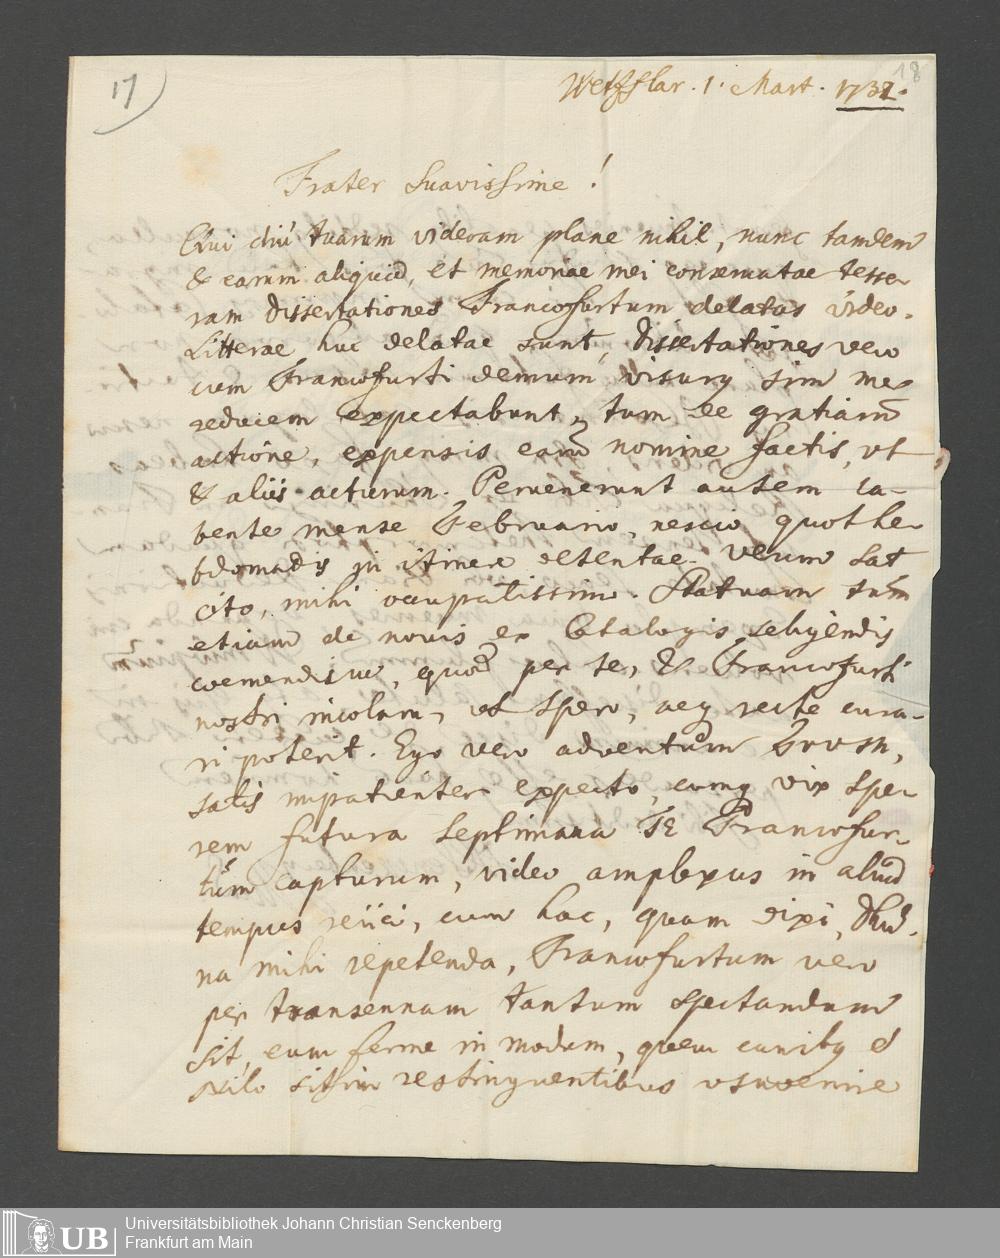 17
18
Wetzflar. 1. Mart. 1732.
Frater Suavissime!
Qui diu tuarum videram plane nihil, nunc tandem
& earum aliquid, et memoriae mei conservatae tesse-
ram dissertationes Francofurtum delatas video.
Litterae huc delatae sunt, dissertationes vero
cum Francofurti demum visurus sim me
reducem expectabunt, tum de gratiarum
actione, expensis earum nomine factis, ut
& aliis acturum. Pervenerunt autem la-
bente mense Februario, nescio quot he-
bdomadis in itinere detentae. Verum sat
cito, mihi occupatissimo. Statuam tum
etiam de novis ex Catalogis seligendis
coemendisve, quod per te, & Francofurti
nostri incolam, ut spero, aeq recte cura-
ri poterit. Ego vero adventum
satis impatienter expecto, cumq vix spe-
rem futura septimana TE Francofur-
tum capturum, video amplexus in aliud
tempus reiici, cum hac, quam dixi,
na mihi repetenda, Francofurtum vero
per transennam tantum spectandum
sit, eum ferme in modum, quem canibus e
Nilo sitim restinguentibus usuvenire
UB Universitätsbibliothek Johann Christian Senckenberg
Frankfurt am Main